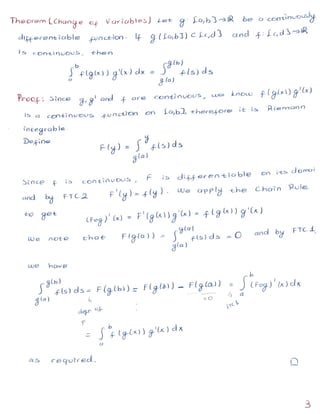 Theorem (Change of Variables) Let g [a,b]→ℝ be a continuously
differentiable function. If g([a,b]) ⊂ [c,d] and f:[c,d]→ℝ
is continuous, then
∫_a^b f(g(x)) g'(x) dx = ∫_{g(a)}^{g(b)} f(s) ds
Proof: Since g, g' and f are continuous, we know f(g(x)) g'(x)
is a continuous function on [a,b], therefore it is Riemann
integrable.
Define
F(y) = ∫_{g(a)}^y f(s) ds
Since f is continuous, F is differentiable on its domain
and by FTC 2 F'(y) = f(y). We apply the Chain Rule
to get
(F∘g)'(x) = F'(g(x)) g'(x) = f(g(x)) g'(x)
We note that F(g(a)) = ∫_{g(a)}^{g(a)} f(s) ds = 0 and by FTC 1
we have
∫_{g(a)}^{g(b)} f(s) ds = F(g(b)) = F(g(b)) - F(g(a)) = ∫_a^b (F∘g)'(x) dx
=0
F
= ∫_a^b f(g(x)) g'(x) dx
as required. □
3